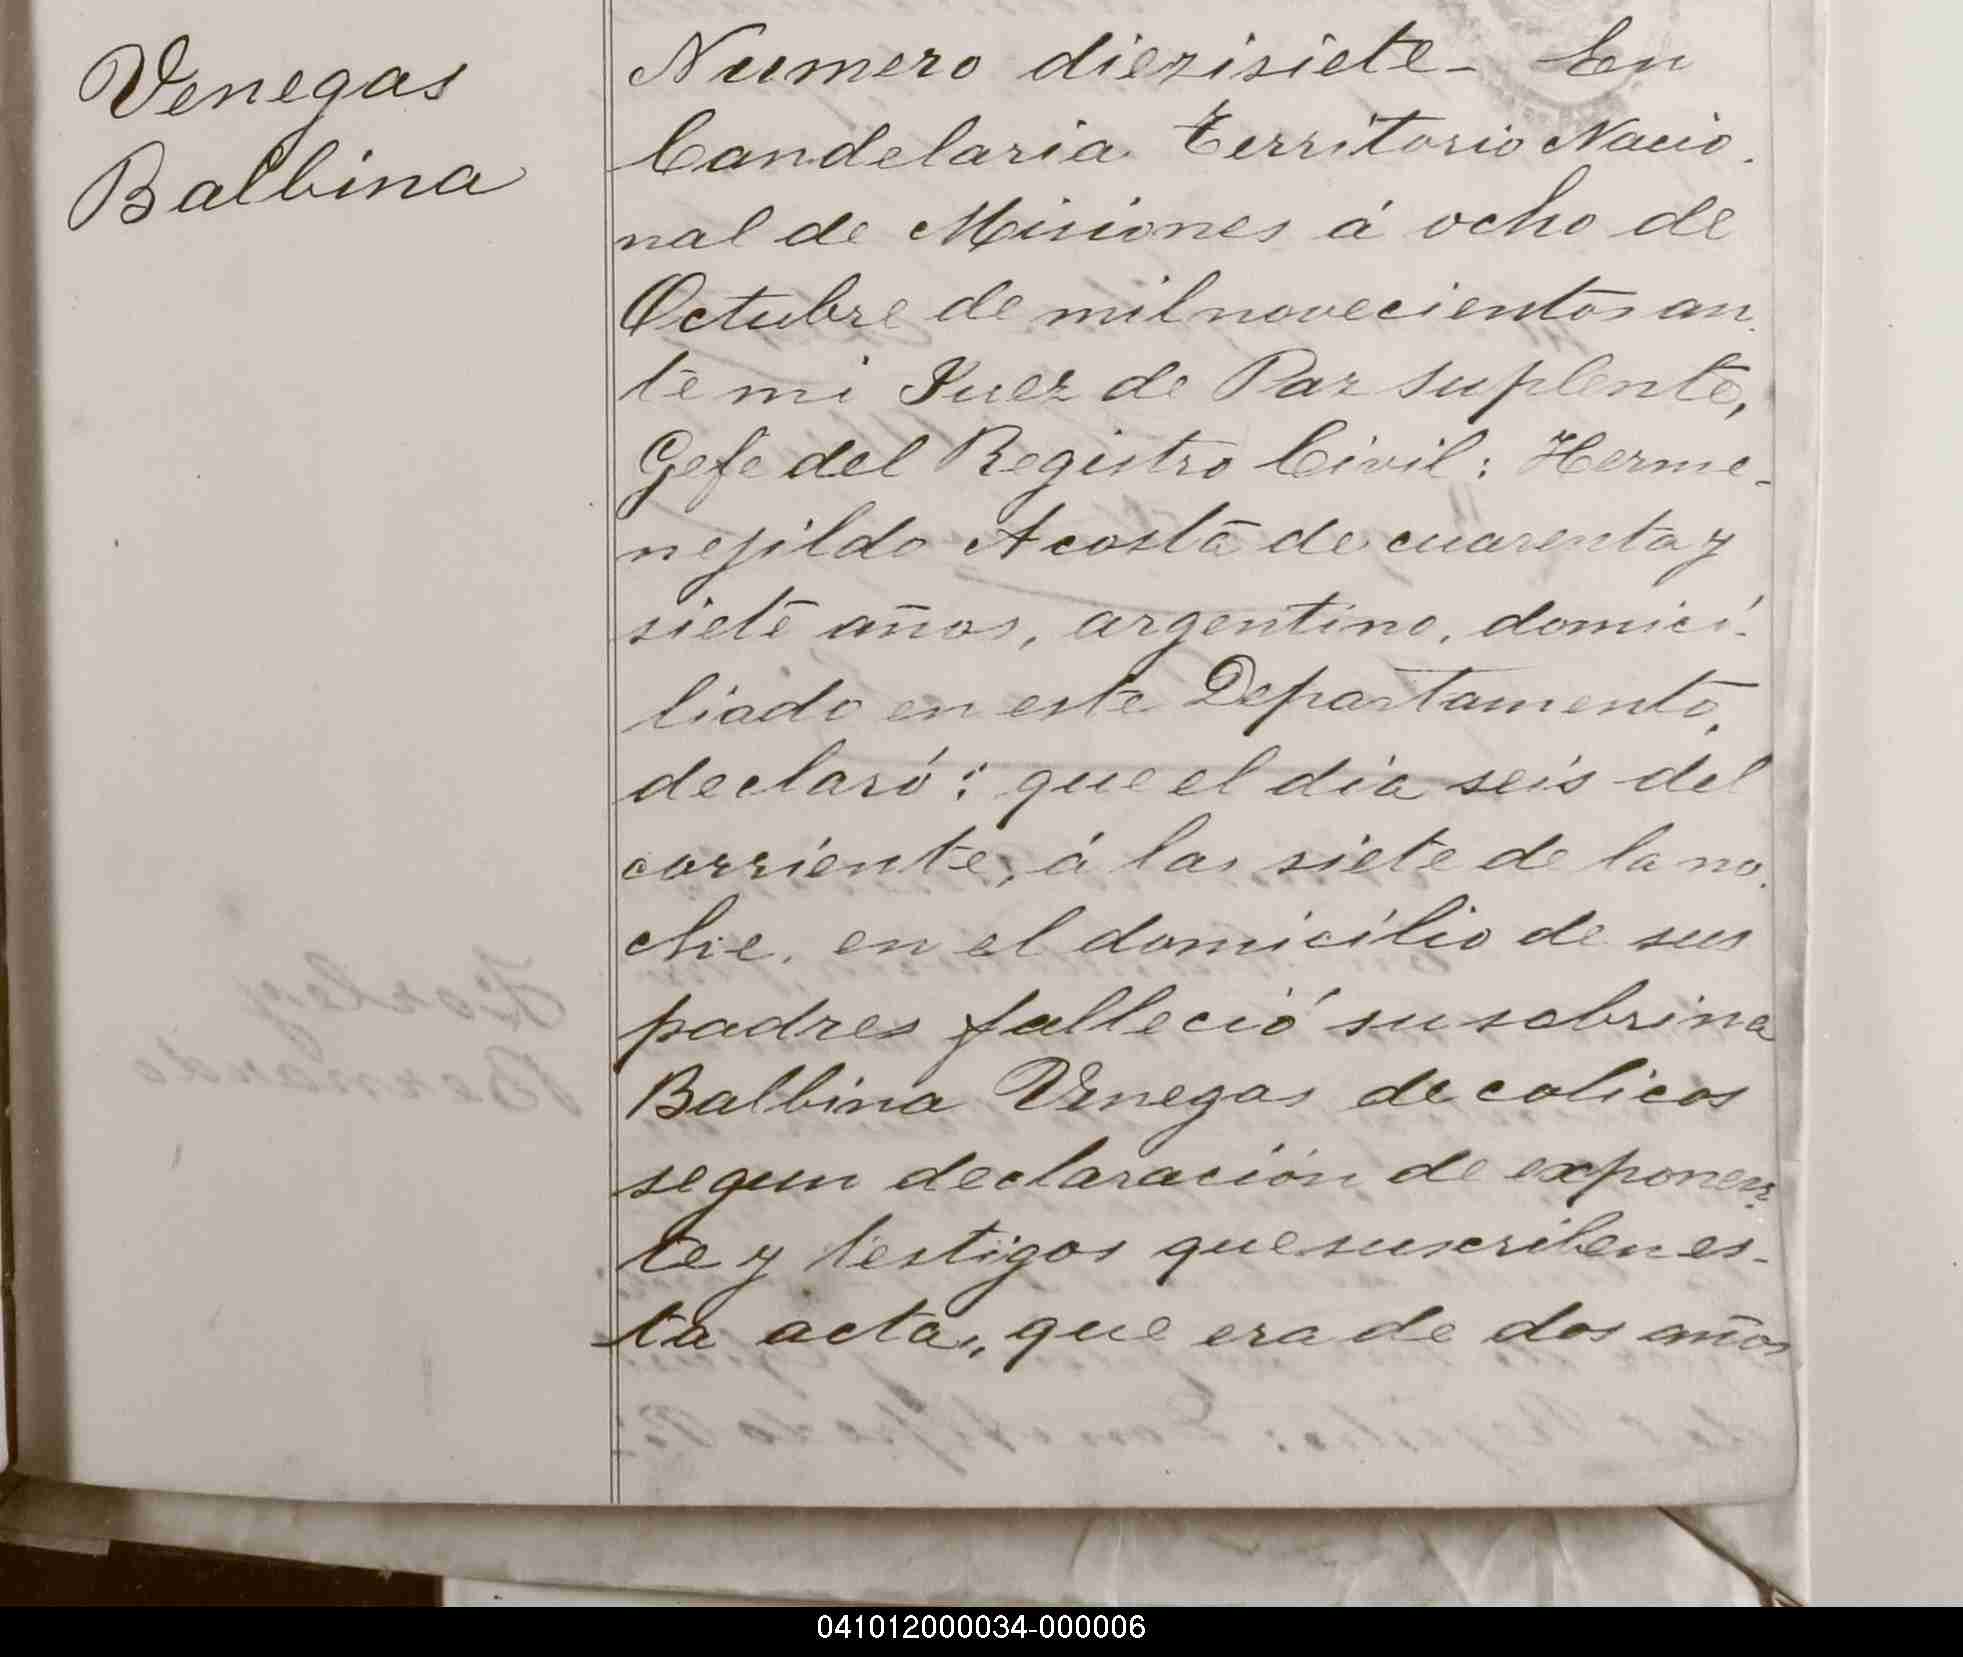 Venegas
Balbina
Numero diezisiete - En
Candelaria Territorio Nacio-
nal de Misiones á ocho de
Octubre de mil novecientos an-
te mi Juez de Paz suplente,
Gefe del Registro Civil: Herme-
nejildo Acosta de cuarenta y
siete años, argentino, domici-
liado en este Departamento,
declaró: que el dia seis del
corriente, á las siete de la no-
che, en el domicilio de sus
padres falleció su sobrina
Balbina Venegas de colicos
segun declaración de exponen-
te y testigos que suscriben es-
ta acta, que era de dos años
041012000034-000006